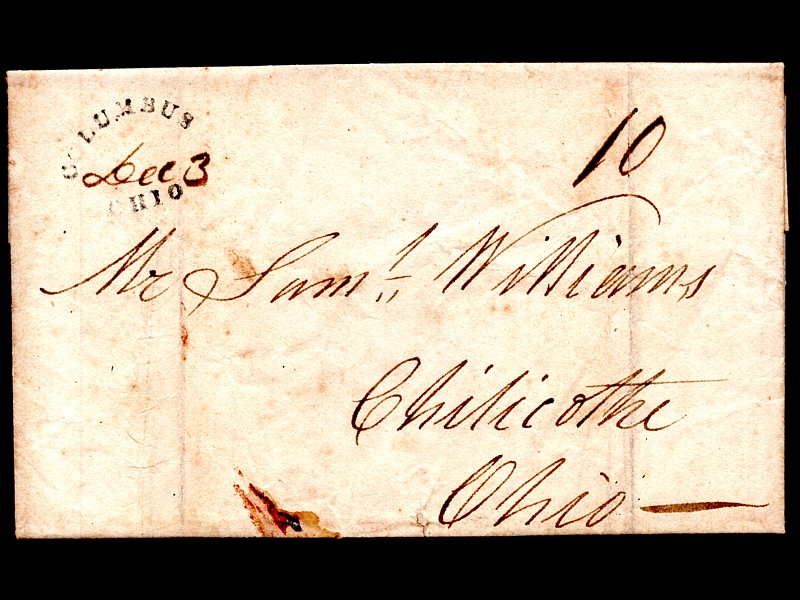 COLUMBUS
Dec 3
OHIO
10
Mr Saml. Williams
Chilicothe
Ohio